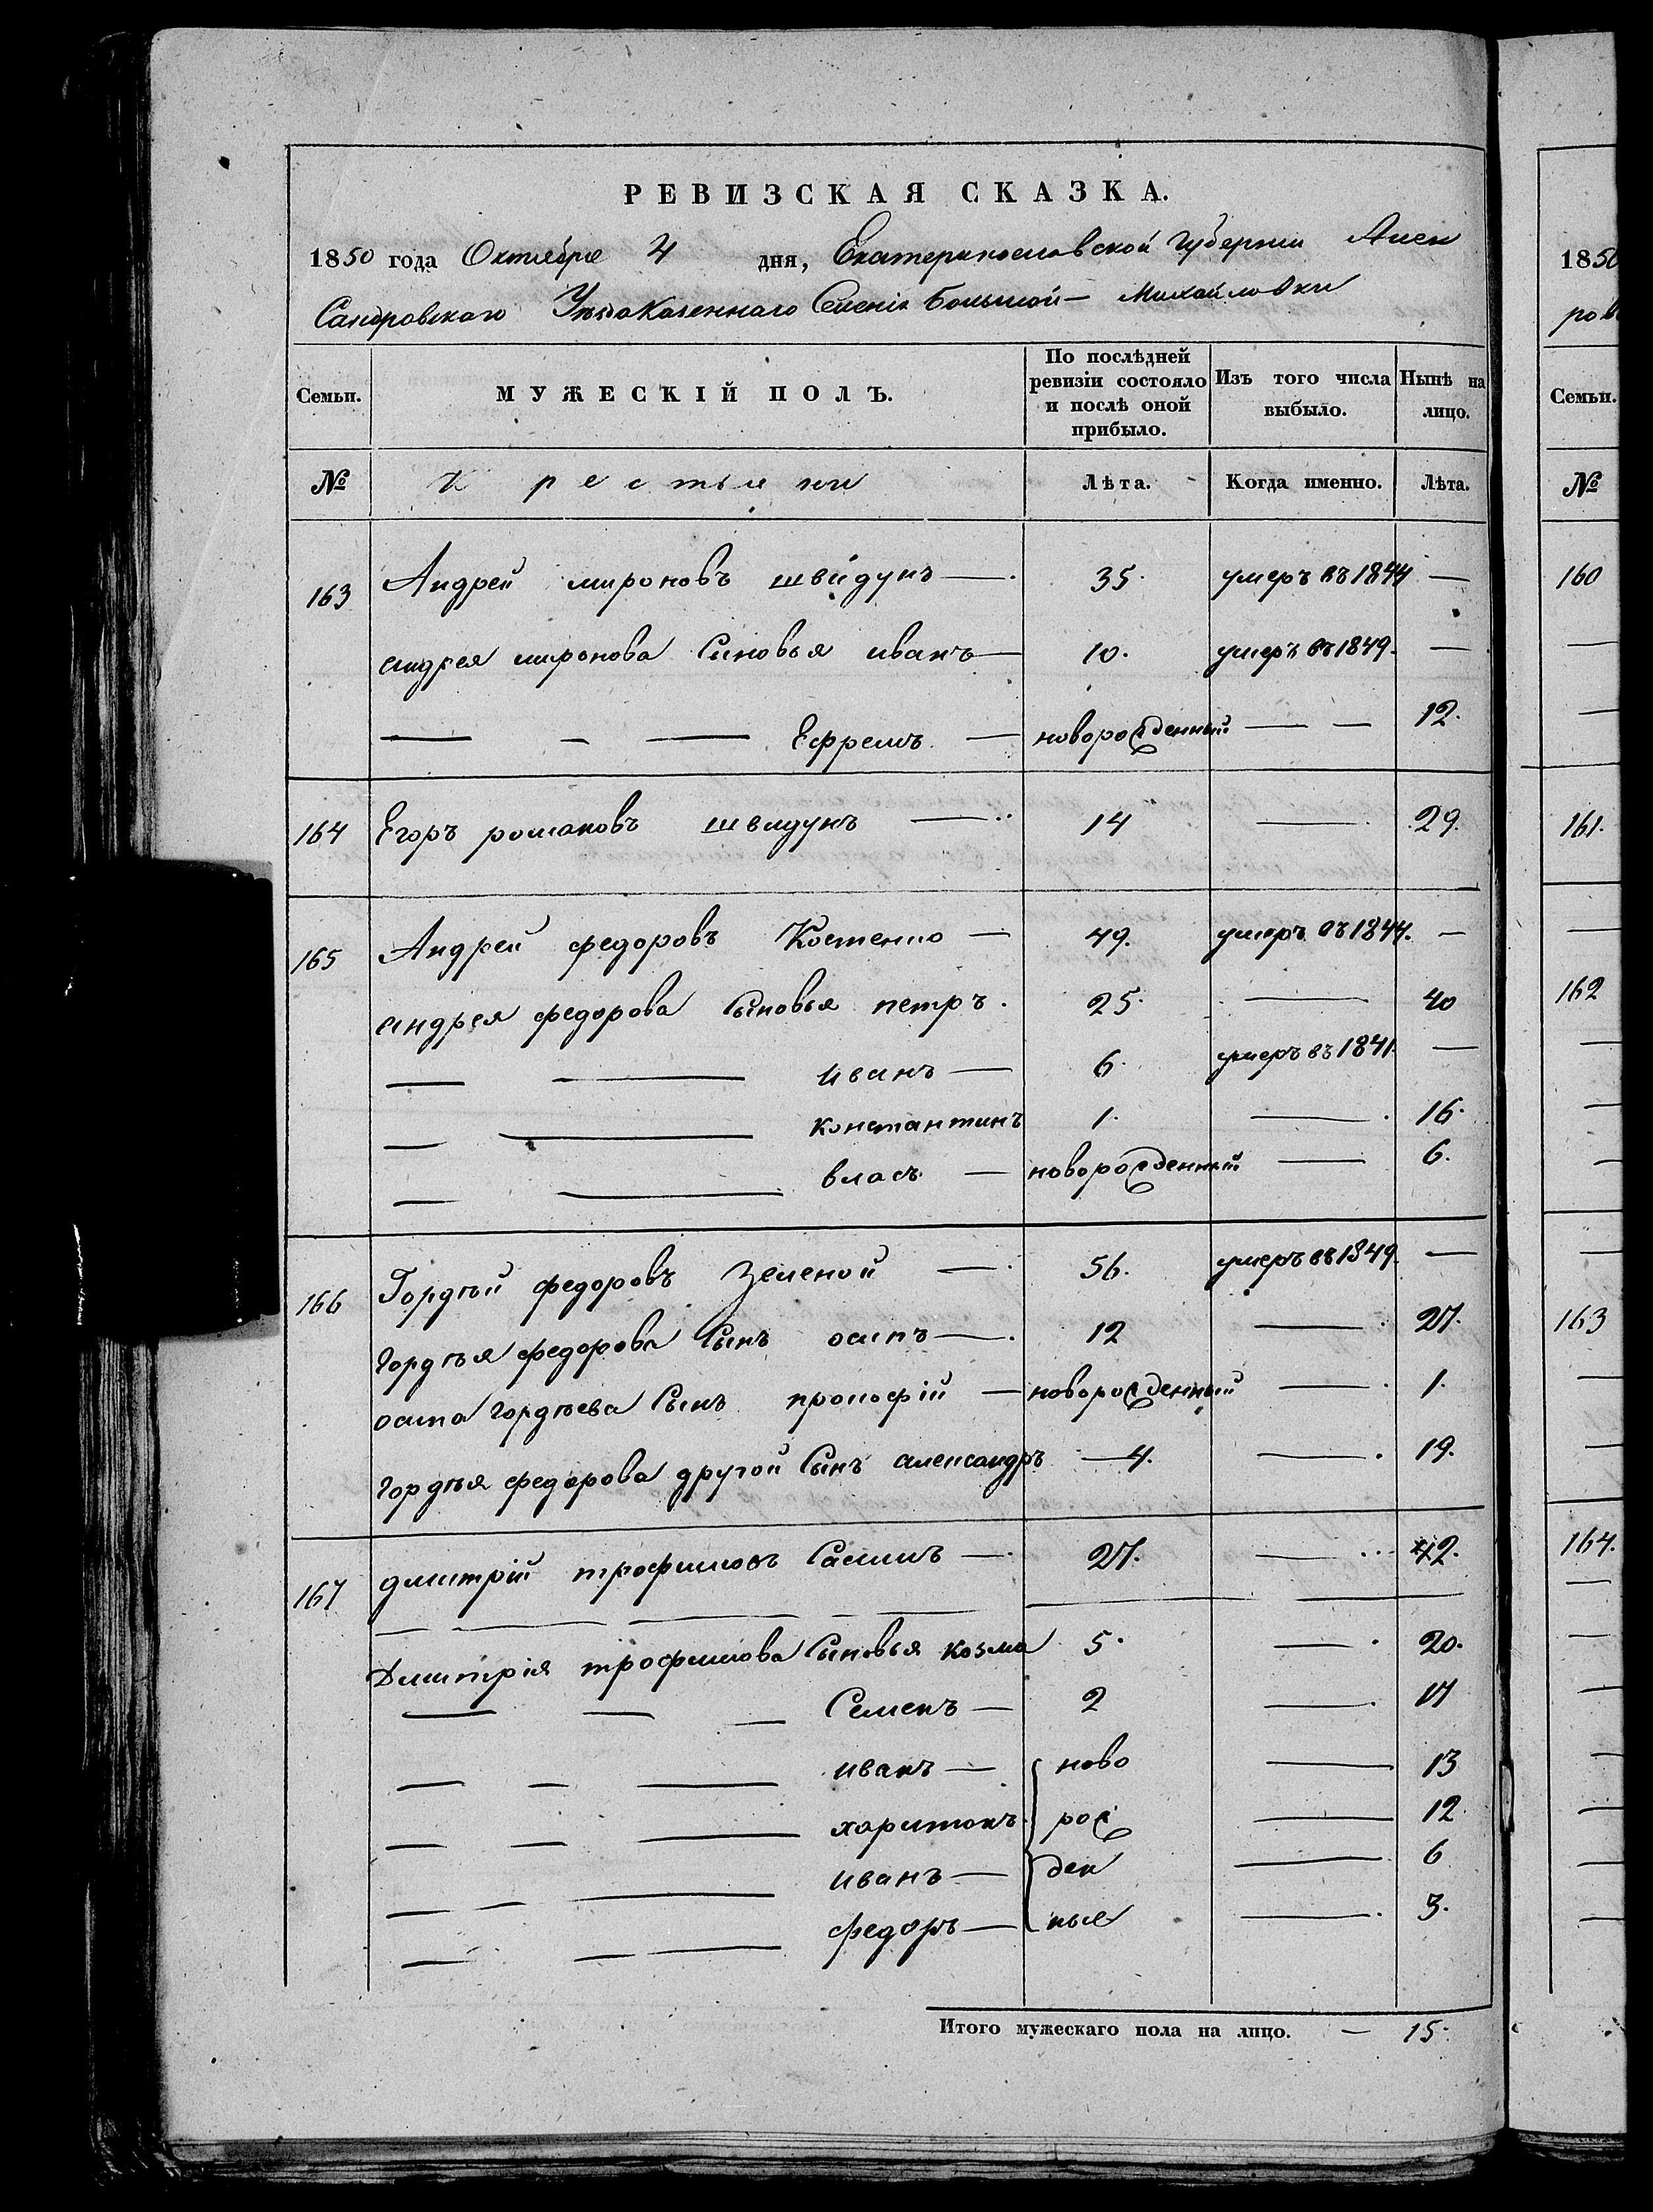 РЕВИЗСКАЯ СКАЗКА.
1850 года Октября 4 дня, Екатеринославской Губернии Алек
Сандровскаго Уезда Казеннаго Селенія Большой-Михайловки
Семьи. МУЖЕСКІЙ ПОЛЪ. По послѣдней ревизіи состояло и послѣ оной прибыло. Изъ того числа выбыло. Нынѣ на лицо.
№ Крестьяни Лѣта. Когда именно. Лѣта.
163 Андрей мироновъ швидунъ — 35. умеръ въ 1844 —
андрея миронова Сыновья иванъ — 10. умеръ въ 1849. —
— — — Ефремъ — новорожденный — — 12.
164 Егоръ романовъ швидунъ — 14 — 29.
165 Андрей федоровъ Костенко — 49. умеръ въ 1844. —
андрея федорова Сыновья петръ. 25. — 40
— — иванъ — 6. умеръ въ 1841. —
— — константинъ 1. — 16.
— — власъ — новорожденный — 6.
166 Гордѣй федоровъ Зеленой — 56. умеръ въ 1849. —
гордѣя федорова Сынъ осипъ — 12 — 27.
осипа гордѣева Сынъ прокофій — новорожденный — 1.
гордѣя федорова другой Сынъ александръ — 4. — 19.
167 дмитрій трофимовъ — 27. — 42.
Дмитрія трофимова Сыновья козма 5. — 20.
— — — Семенъ — 2 — 17
— — — иванъ — ново — 13
— — — харитонъ рож — 12.
— — — иванъ — ден — 6
— — — федоръ — ные — 3.
Итого мужескаго пола на лицо. — 15.
1850
ров
Семьи.
№
160
161.
162
163
164.